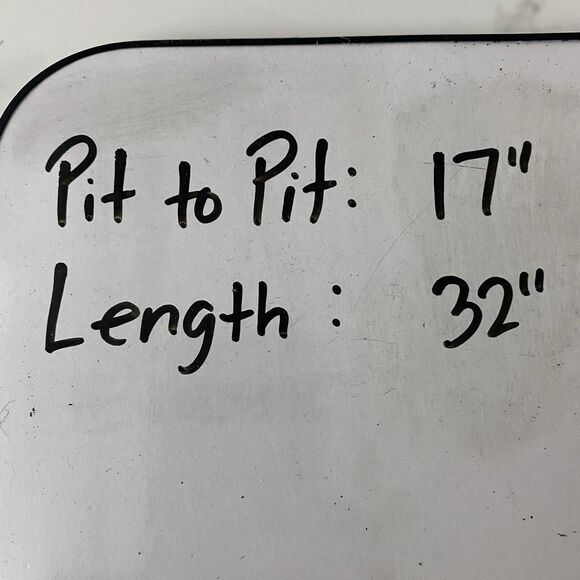 Pit to Pit: 17"
Length: 32"